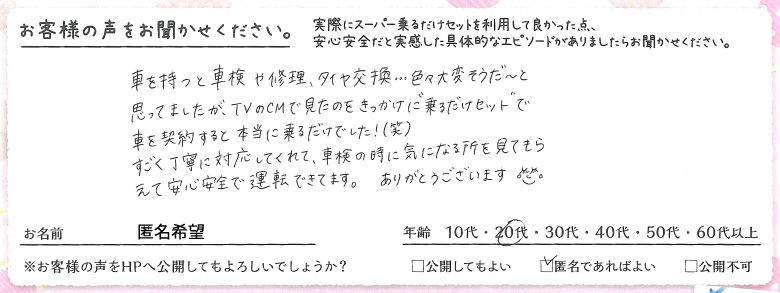 お客様の声をお聞かせください。
実際にスーパー乗るだけセットを利用して良かった点、
安心安全だと実感した具体的なエピソードがありましたらお聞かせください。
車を持つと車検や修理、タイヤ交換…色々大変そうだ〜と
思ってましたが、TVのCMで見たのをきっかけに"乗るだけセット"で
車を契約すると本当に乗るだけでした!(笑)
すごく丁寧に対応してくれて、車検の時に気になる所を見てもら
えて安心安全で運転できてます。 ありがとうございます
お名前 匿名希望 年齢 10代・20代・30代・40代・50代・60代以上
※お客様の声をHPへ公開してもよろしいでしょうか? □公開してもよい ☑匿名であればよい □公開不可